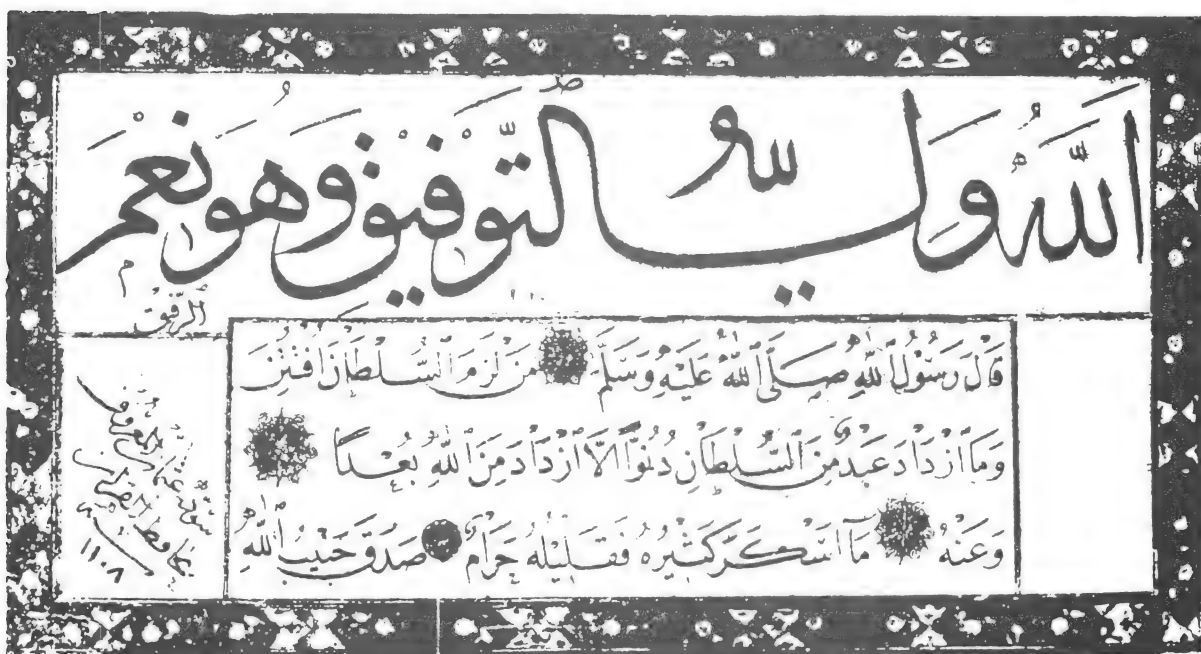 اَللّٰهُ وَلِيُّ التَّوْفِيقِ وَهُوَ نِعْمَ
الرَّفِيقُ
قَالَ رَسُولُ اللّٰهِ صَلَّى اللّٰهُ عَلَيْهِ وَسَلَّمَ مَنْ لَزِمَ السُّلْطَانَ افْتُتِنَ
وَمَا ازْدَادَ عَبْدٌ مِنَ السُّلْطَانِ دُنُوًّا اِلَّا ازْدَادَ مِنَ اللّٰهِ بُعْدًا
وَعَنْهُ مَا اَسْكَرَ كَثِيرُهُ فَقَلِيلُهُ حَرَامٌ صَدَقَ حَبِيبُ اللّٰهِ
سوّده عثمان المعروف
بحافظ القرآن
١١٠٨